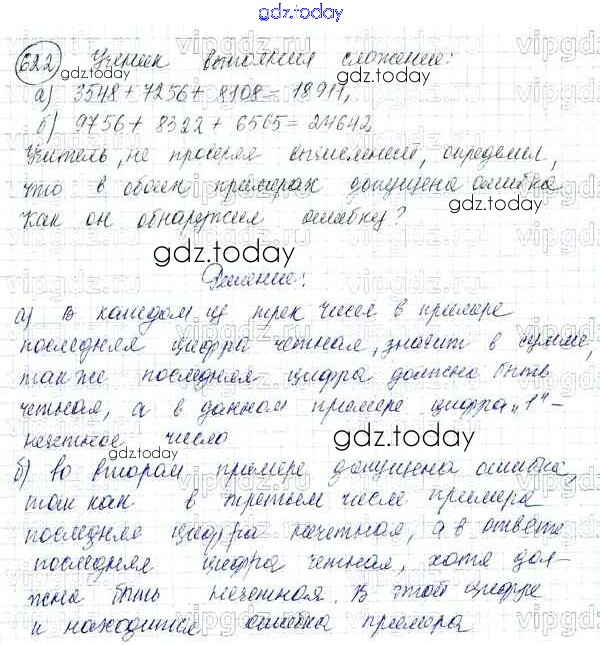 gdz.today
622 Ученик выполнял сложение:
а) 3548 + 7256 + 8108 = 18911,
б) 9756 + 8322 + 6565 = 24642
Учитель, не проверяя вычислений, определил,
что в обоих примерах допущена ошибка
Как он обнаружил ошибку?
Решение:
а) В каждом из трех чисел в примере
последняя цифра четная, значит в сумме,
также последняя цифра должна быть
четная, а в данном примере цифра „1“ -
нечетное число
б) во втором примере допущена ошибка,
так как в третьем числе примера
последняя цифра нечетная, а в ответе
последняя цифра четная, хотя дол-
жна быть нечетная. В этой цифре
и находится ошибка примера